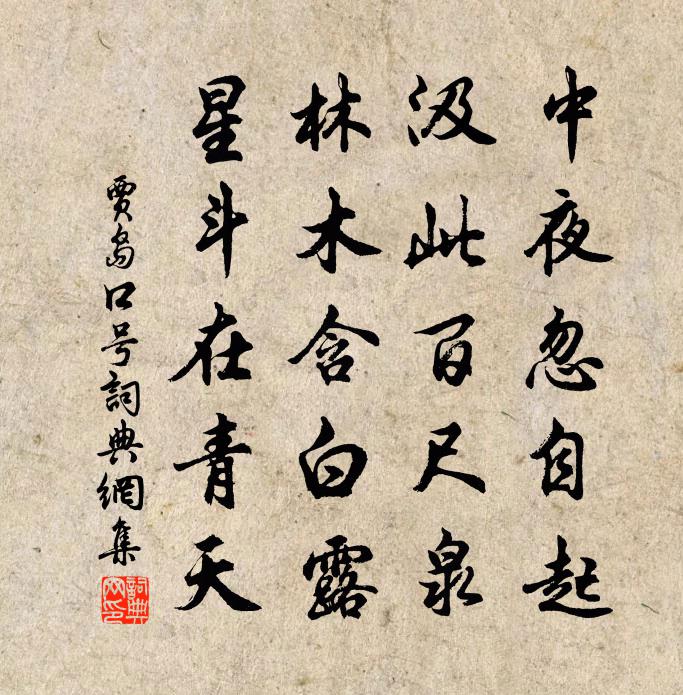 中夜忽自起
汲此百尺泉
林木含白露
星斗在青天
賈島口号詞典網集
詞典网印